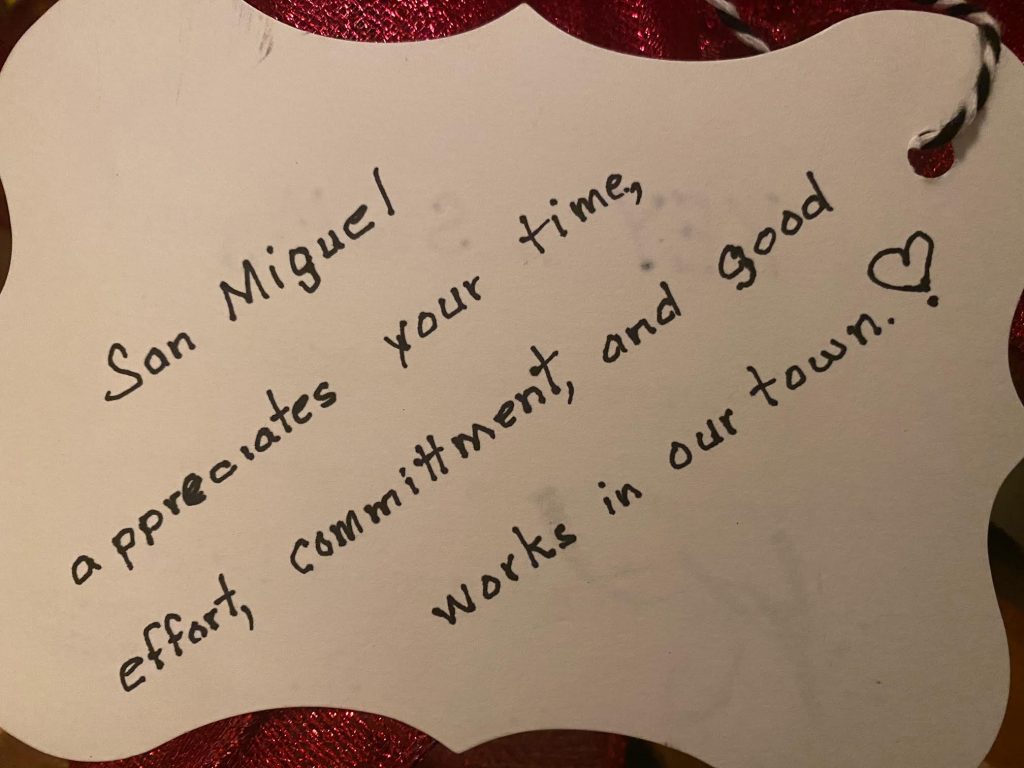 San Miguel
appreciates your time,
effort, committment, and good
works in our town.